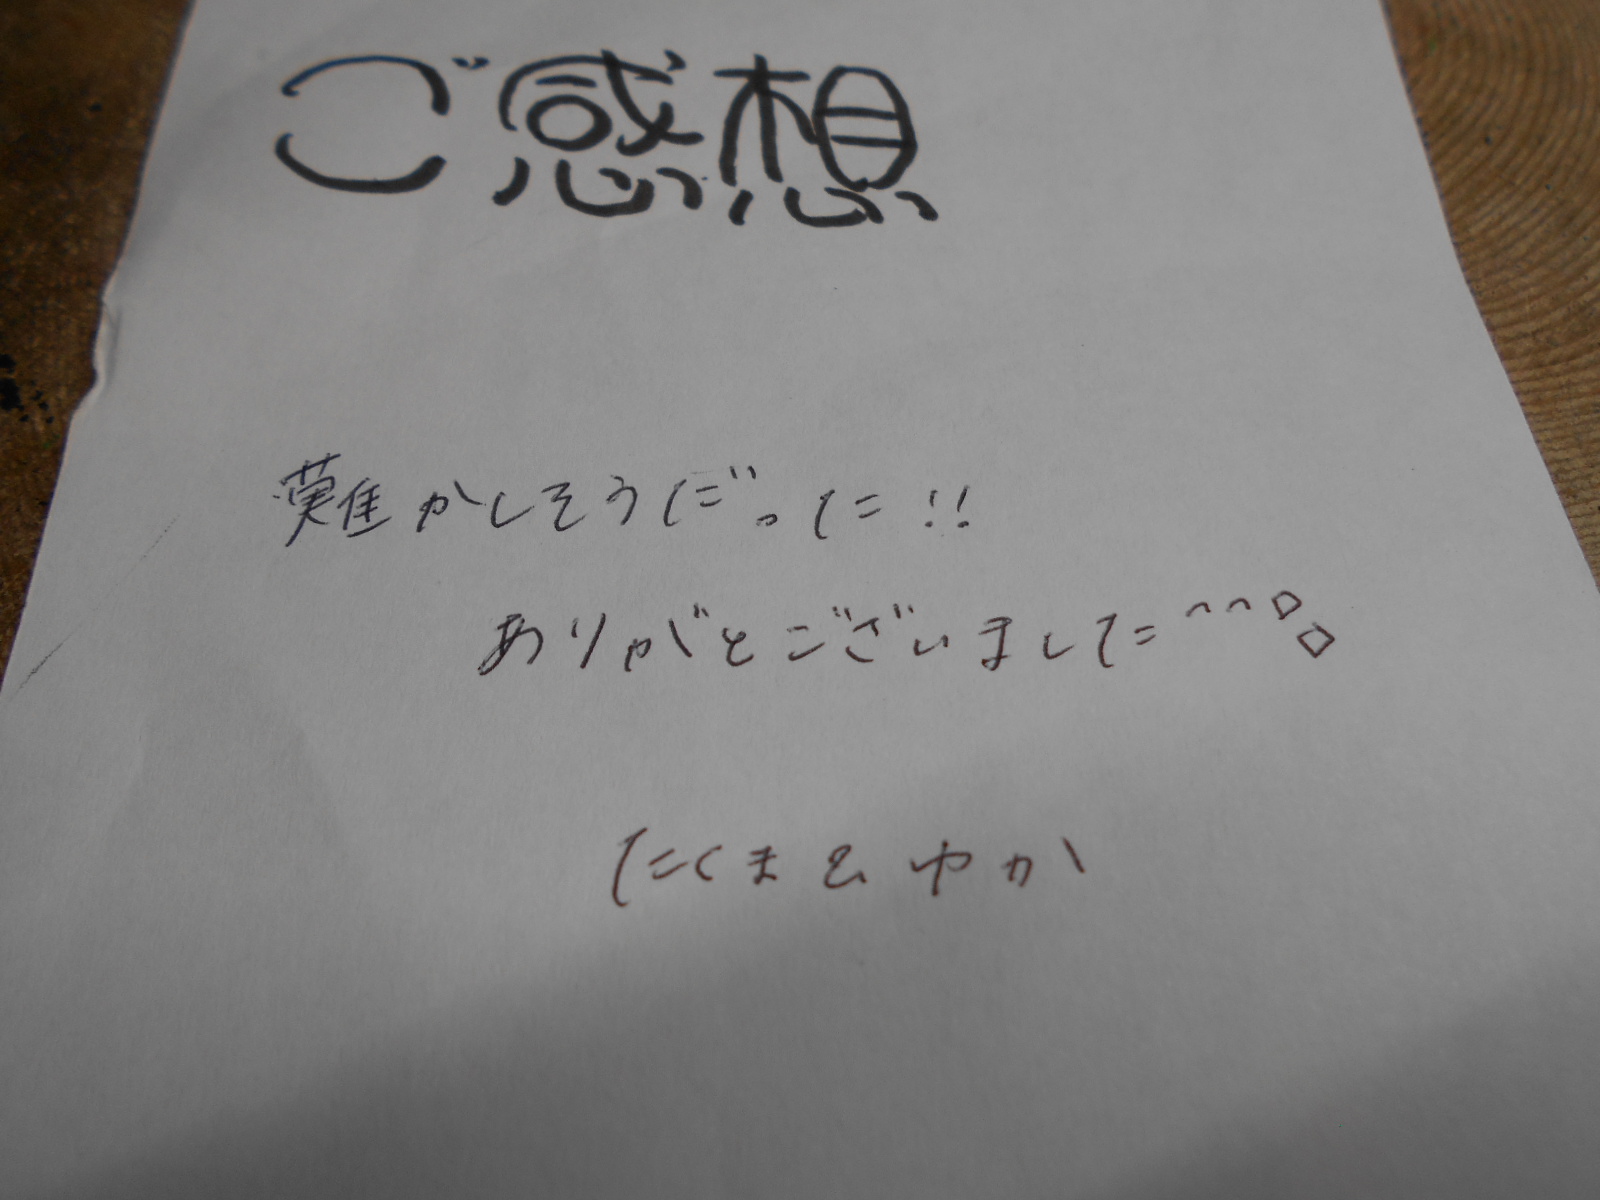 ご感想
難かしそうだった!!
ありがとございました^^◇◇
たくま&ゆか